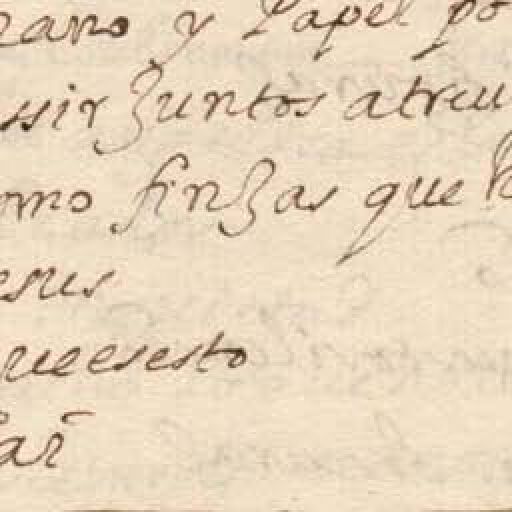 rano y Papel po
ssir Juntos atreu
omo finJas que h
esus
queesesto
ar